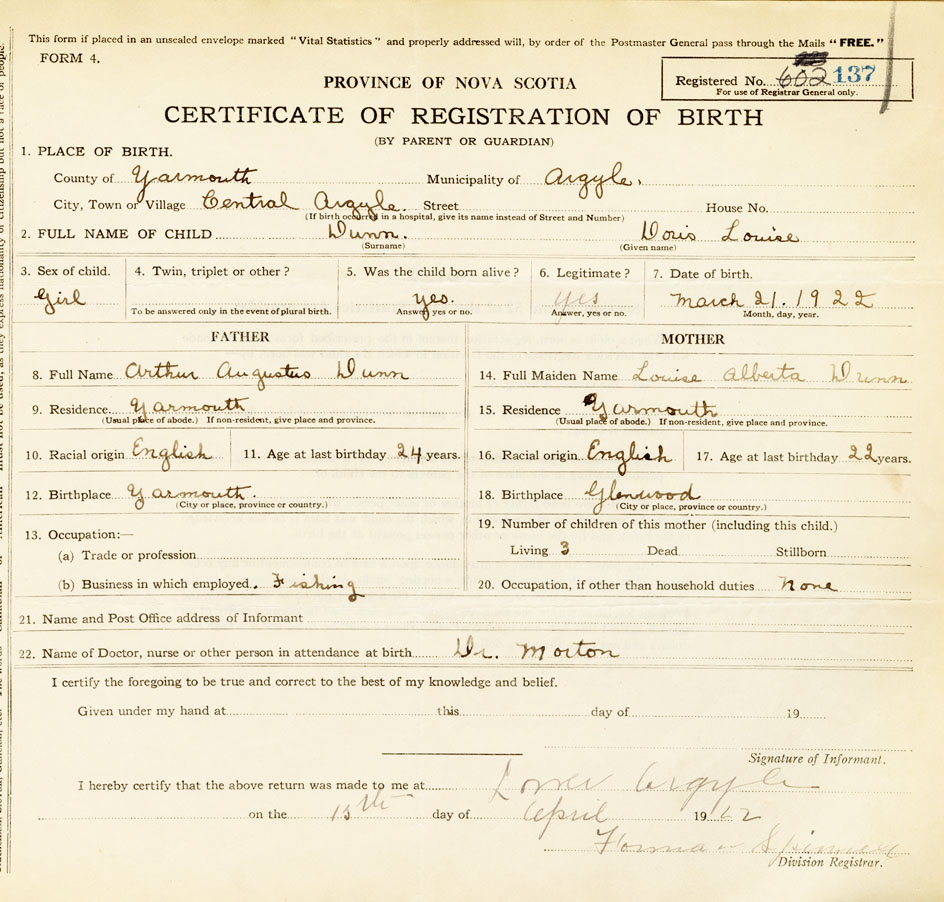 This form if placed in an unsealed envelope marked "Vital Statistics" and properly addressed will, by order of the Postmaster General pass through the Mails "FREE."
FORM 4.
PROVINCE OF NOVA SCOTIA
Registered No. 602 137
For use of Registrar General only.
CERTIFICATE OF REGISTRATION OF BIRTH
(BY PARENT OR GUARDIAN)
1. PLACE OF BIRTH.
County of Yarmouth Municipality of Argyle.
City, Town or Village Central Argyle. Street House No.
(If birth occurred in a hospital, give its name instead of Street and Number)
2. FULL NAME OF CHILD Dunn. Doris Louise
(Surname) (Given name)
3. Sex of child. 4. Twin, triplet or other? 5. Was the child born alive? 6. Legitimate? 7. Date of birth.
Girl yes. yes March 21. 1922
To be answered only in the event of plural birth. Answer yes or no. Answer, yes or no. Month, day, year.
FATHER MOTHER
8. Full Name Arthur Augustus Dunn 14. Full Maiden Name Louise Alberta Dunn
9. Residence Yarmouth 15. Residence Yarmouth
(Usual place of abode.) If non-resident, give place and province. (Usual place of abode.) If non-resident, give place and province.
10. Racial origin English 11. Age at last birthday 24 years. 16. Racial origin English 17. Age at last birthday 22 years.
12. Birthplace Yarmouth. 18. Birthplace Glenwood
(City or place, province or country.) (City or place, province or country.)
13. Occupation:— 19. Number of children of this mother (including this child.)
(a) Trade or profession Living 3 Dead Stillborn
(b) Business in which employed Fishing 20. Occupation, if other than household duties None
21. Name and Post Office address of Informant
22. Name of Doctor, nurse or other person in attendance at birth Dr. Morton
I certify the foregoing to be true and correct to the best of my knowledge and belief.
Given under my hand at this day of 19
Signature of Informant.
I hereby certify that the above return was made to me at Lower Argyle
on the 15th day of April 19
Division Registrar.